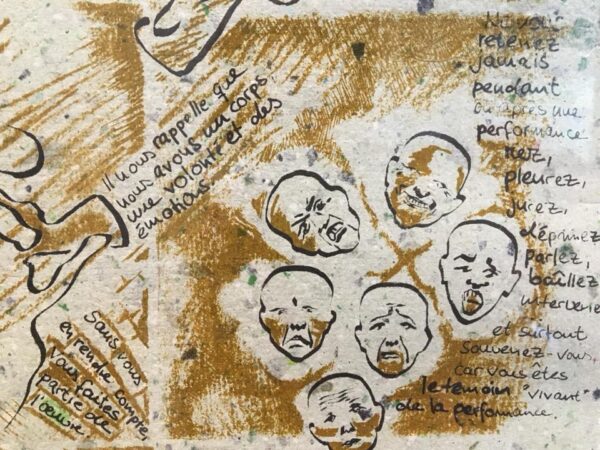 Il nous rappelle que
nous avons un corps,
une volonté et des
émotions
Sans vous
en rendre compte,
vous faites
partie de
l'oeuvre.
Ne vous
retenez
jamais
pendant
ou après une
performance
riez,
pleurez,
jurez,
déprimez
parlez,
baîllez
intervenez
et surtout
souvenez-vous,
car vous êtes
le témoin "vivant"
de la performance.